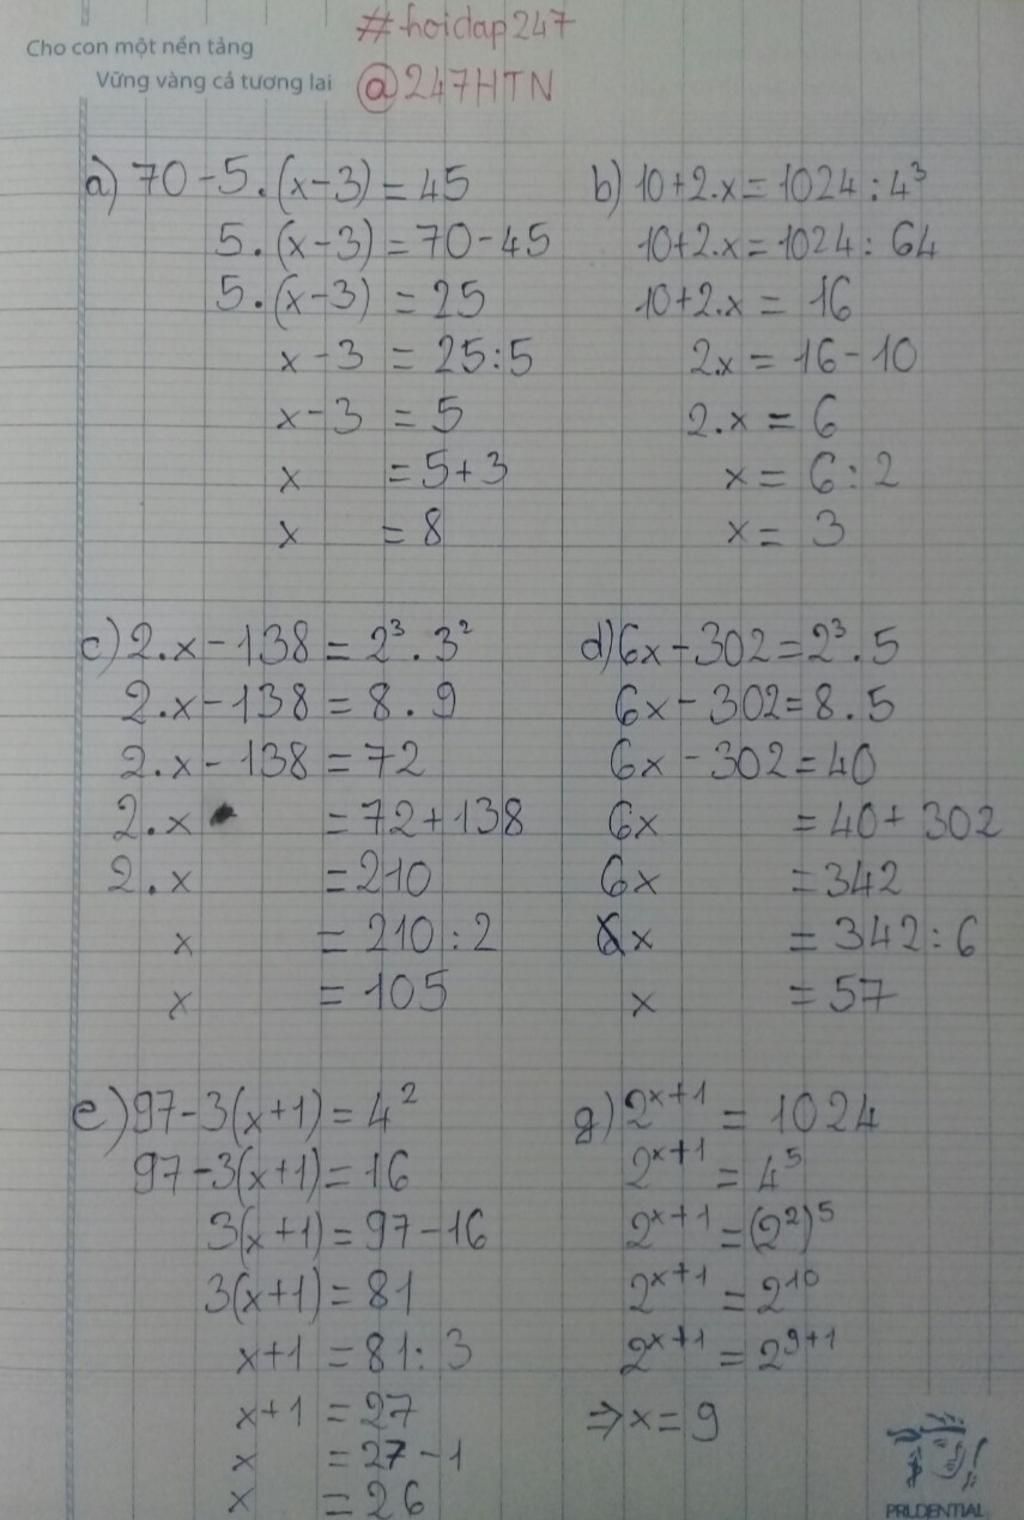 Cho con một nền tảng
Vững vàng cả tương lai
#hoidap247
@247HTN
a) 70 - 5.(x-3) = 45
5.(x-3) = 70 - 45
5.(x-3) = 25
x - 3 = 25:5
x - 3 = 5
x = 5+3
x = 8
b) 10+2.x = 1024 : 4³
10+2.x = 1024 : 64
10+2.x = 16
2.x = 16 - 10
2.x = 6
x = 6 : 2
x = 3
c) 2.x - 138 = 2³ . 3²
2.x - 138 = 8 . 9
2.x - 138 = 72
2.x = 72 + 138
2.x = 210
x = 210 : 2
x = 105
d) 6x - 302 = 2³ . 5
6x - 302 = 8 . 5
6x - 302 = 40
6x = 40 + 302
6x = 342
x = 342 : 6
x = 57
e) 97 - 3(x+1) = 4²
97 - 3(x+1) = 16
3(x+1) = 97 - 16
3(x+1) = 81
x+1 = 81 : 3
x+1 = 27
x = 27 - 1
x = 26
g) 2ˣ⁺¹ = 1024
2ˣ⁺¹ = 4⁵
2ˣ⁺¹ = (2²)⁵
2ˣ⁺¹ = 2¹⁰
2ˣ⁺¹ = 2⁹⁺¹
⇒ x = 9
PRUDENTIAL